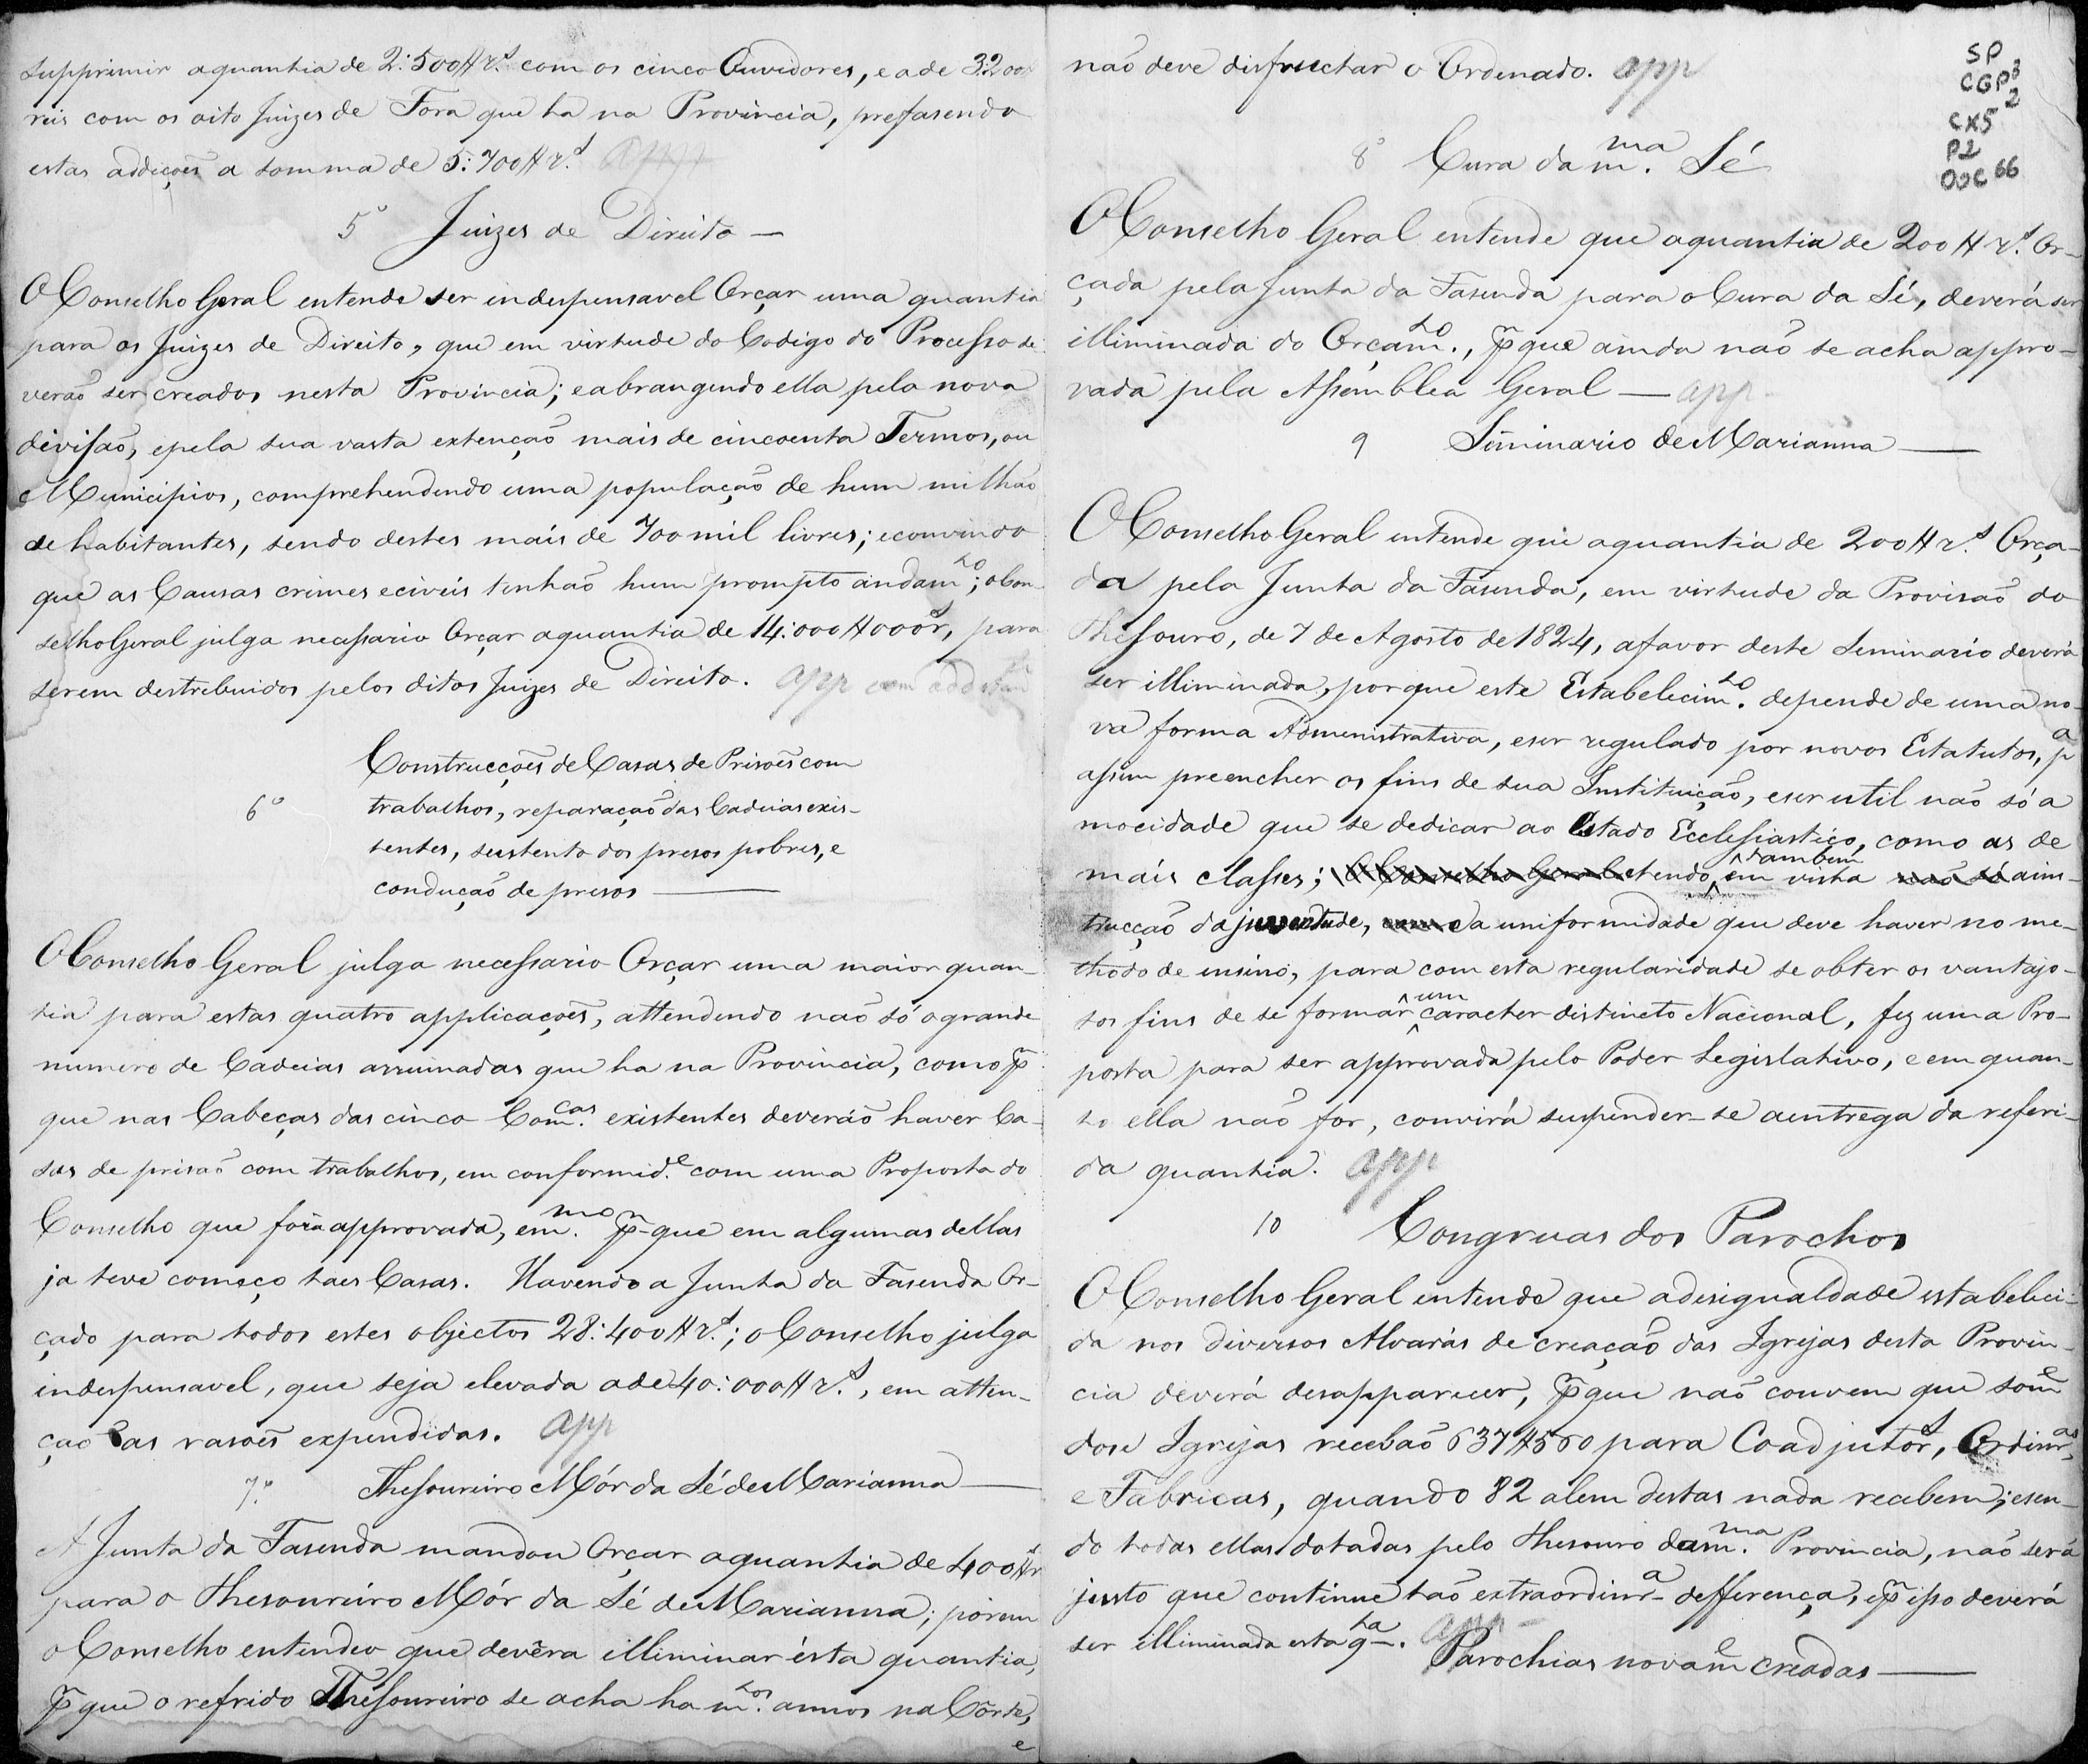 supprimir aquantia de 2:500# r.s com os cinco Ouvidores, e a de 3:200
reis com os oito Juizes de Fora que ha na Provincia, prefasendo
estas addiçoẽs a somma de 5:700# r.s app
5º Juizes de Direito —
O Conselho Geral entende ser indespensavel Orçar uma quantia
para os Juizes de Direito, que em virtude do Codigo do Processo de-
verão ser creados nesta Provincia; e abrangendo ella pela nova
divisão, e pela sua vasta extenção mais de cincoenta Termos, ou
Municipios, comprehendendo uma população de hum milhão
de habitantes, sendo destes mais de 700 mil livres; e convindo
que as Causas crimes e civeis tenhão hum prompto andam.to; o Con-
selho Geral julga necessario Orçar aquantia de 14:000#000 rs, para
serem destrebuidos pelos ditos Juizes de Direito. app com
Construcçoẽs de Casas de Prisoẽs com
6º trabalhos, reparação das Cadeias exis-
tentes, sustento dos presos pobres, e
condução de presos —
O Conselho Geral julga necessario Orçar uma maior quan-
tia para estas quatro applicaçoẽs, attendendo não só o grande
numero de Cadeias arruinadas que ha na Provincia, como p
que nas Cabeças das cinco Com.cas existentes deverão haver Ca-
sas de prisão com trabalhos, em conformid.e com uma Proposta do
Conselho que fora approvada, e m.mo p que em algumas dellas
ja teve começo taes Casas. Havendo a Junta da Fasenda Or-
çado para todos estes objectos 28:400# r.s; o Conselho julga
indespensavel, que seja elevada a de 40:000# r.s, em atten-
ção as rasoẽs expendidas. app
7º Thesoureiro Mór da Sé de Marianna —
A Junta da Fasenda mandou Orçar aquantia de 400# r
para o Thesoureiro Mór da Sé de Marianna; porem
o Conselho entendeo que devêra illiminar ésta quantia,
p que o refrido Thesoureiro se acha ha m.tos annos na Côrte,
e
não deve disfructar o Ordenado. app
SP
CGP3
2
CX5
P2
DOC 66
8º Cura da m.ma Sé
O Conselho Geral entende que aquantia de 200# r.s Or-
çada pela Junta da Fasenda para o Cura da Sé, deverá ser
illiminada do Orçam.to, p que ainda não se acha appro-
vada pela Assemblea Geral — app
9 Siminario de Marianna —
O Conselho Geral entende que aquantia de 200# r.s Orça-
da pela Junta da Fasenda, em virtude da Provisão do
Thesouro, de 7 de Agosto de 1824, a favor deste Seminario deverá
ser illiminada, porque este Estabelecim.to depende de uma no-
va forma Admenistrativa, e ser regulado por novos Estatutos, p.a
assim preencher os fins de sua Instituição, e ser util não só a
mocidade que se dedicar ao Estado Ecclesiastico, como as de
mais classes; O Conselho Geral tendo tambem em vista não só a ins-
trucção da juventude, como a uniformidade que deve haver no me-
thodo de ensino, para com esta regularidade se obter os vantajo-
sos fins de se formar um caracter destincto Nacional, fez uma Pro-
posta para ser approvada pelo Poder Legislativo, e em quan-
to ella não for, convirá suspender-se a entrega da referi-
da quantia. app
10 Congruas dos Parochos
O Conselho Geral entende que a desigualdade estabeleci-
da nos diversos Alvarás de creação das Igrejas desta Provin-
cia deverá desapparecer, p que não convem que som.e
dose Igrejas recebão 637#560 para Coadjutor.s, Ordinr.as,
e Fabricas, quando 82 alem destas nada recebem; e sen-
do todas ellas dotadas pelo Thesouro da m.ma Provincia, não será
justo que continue tão extraordinr.a defferença, e p isso deverá
ser illiminada esta q.ta. app
Parochias novam.e creadas —